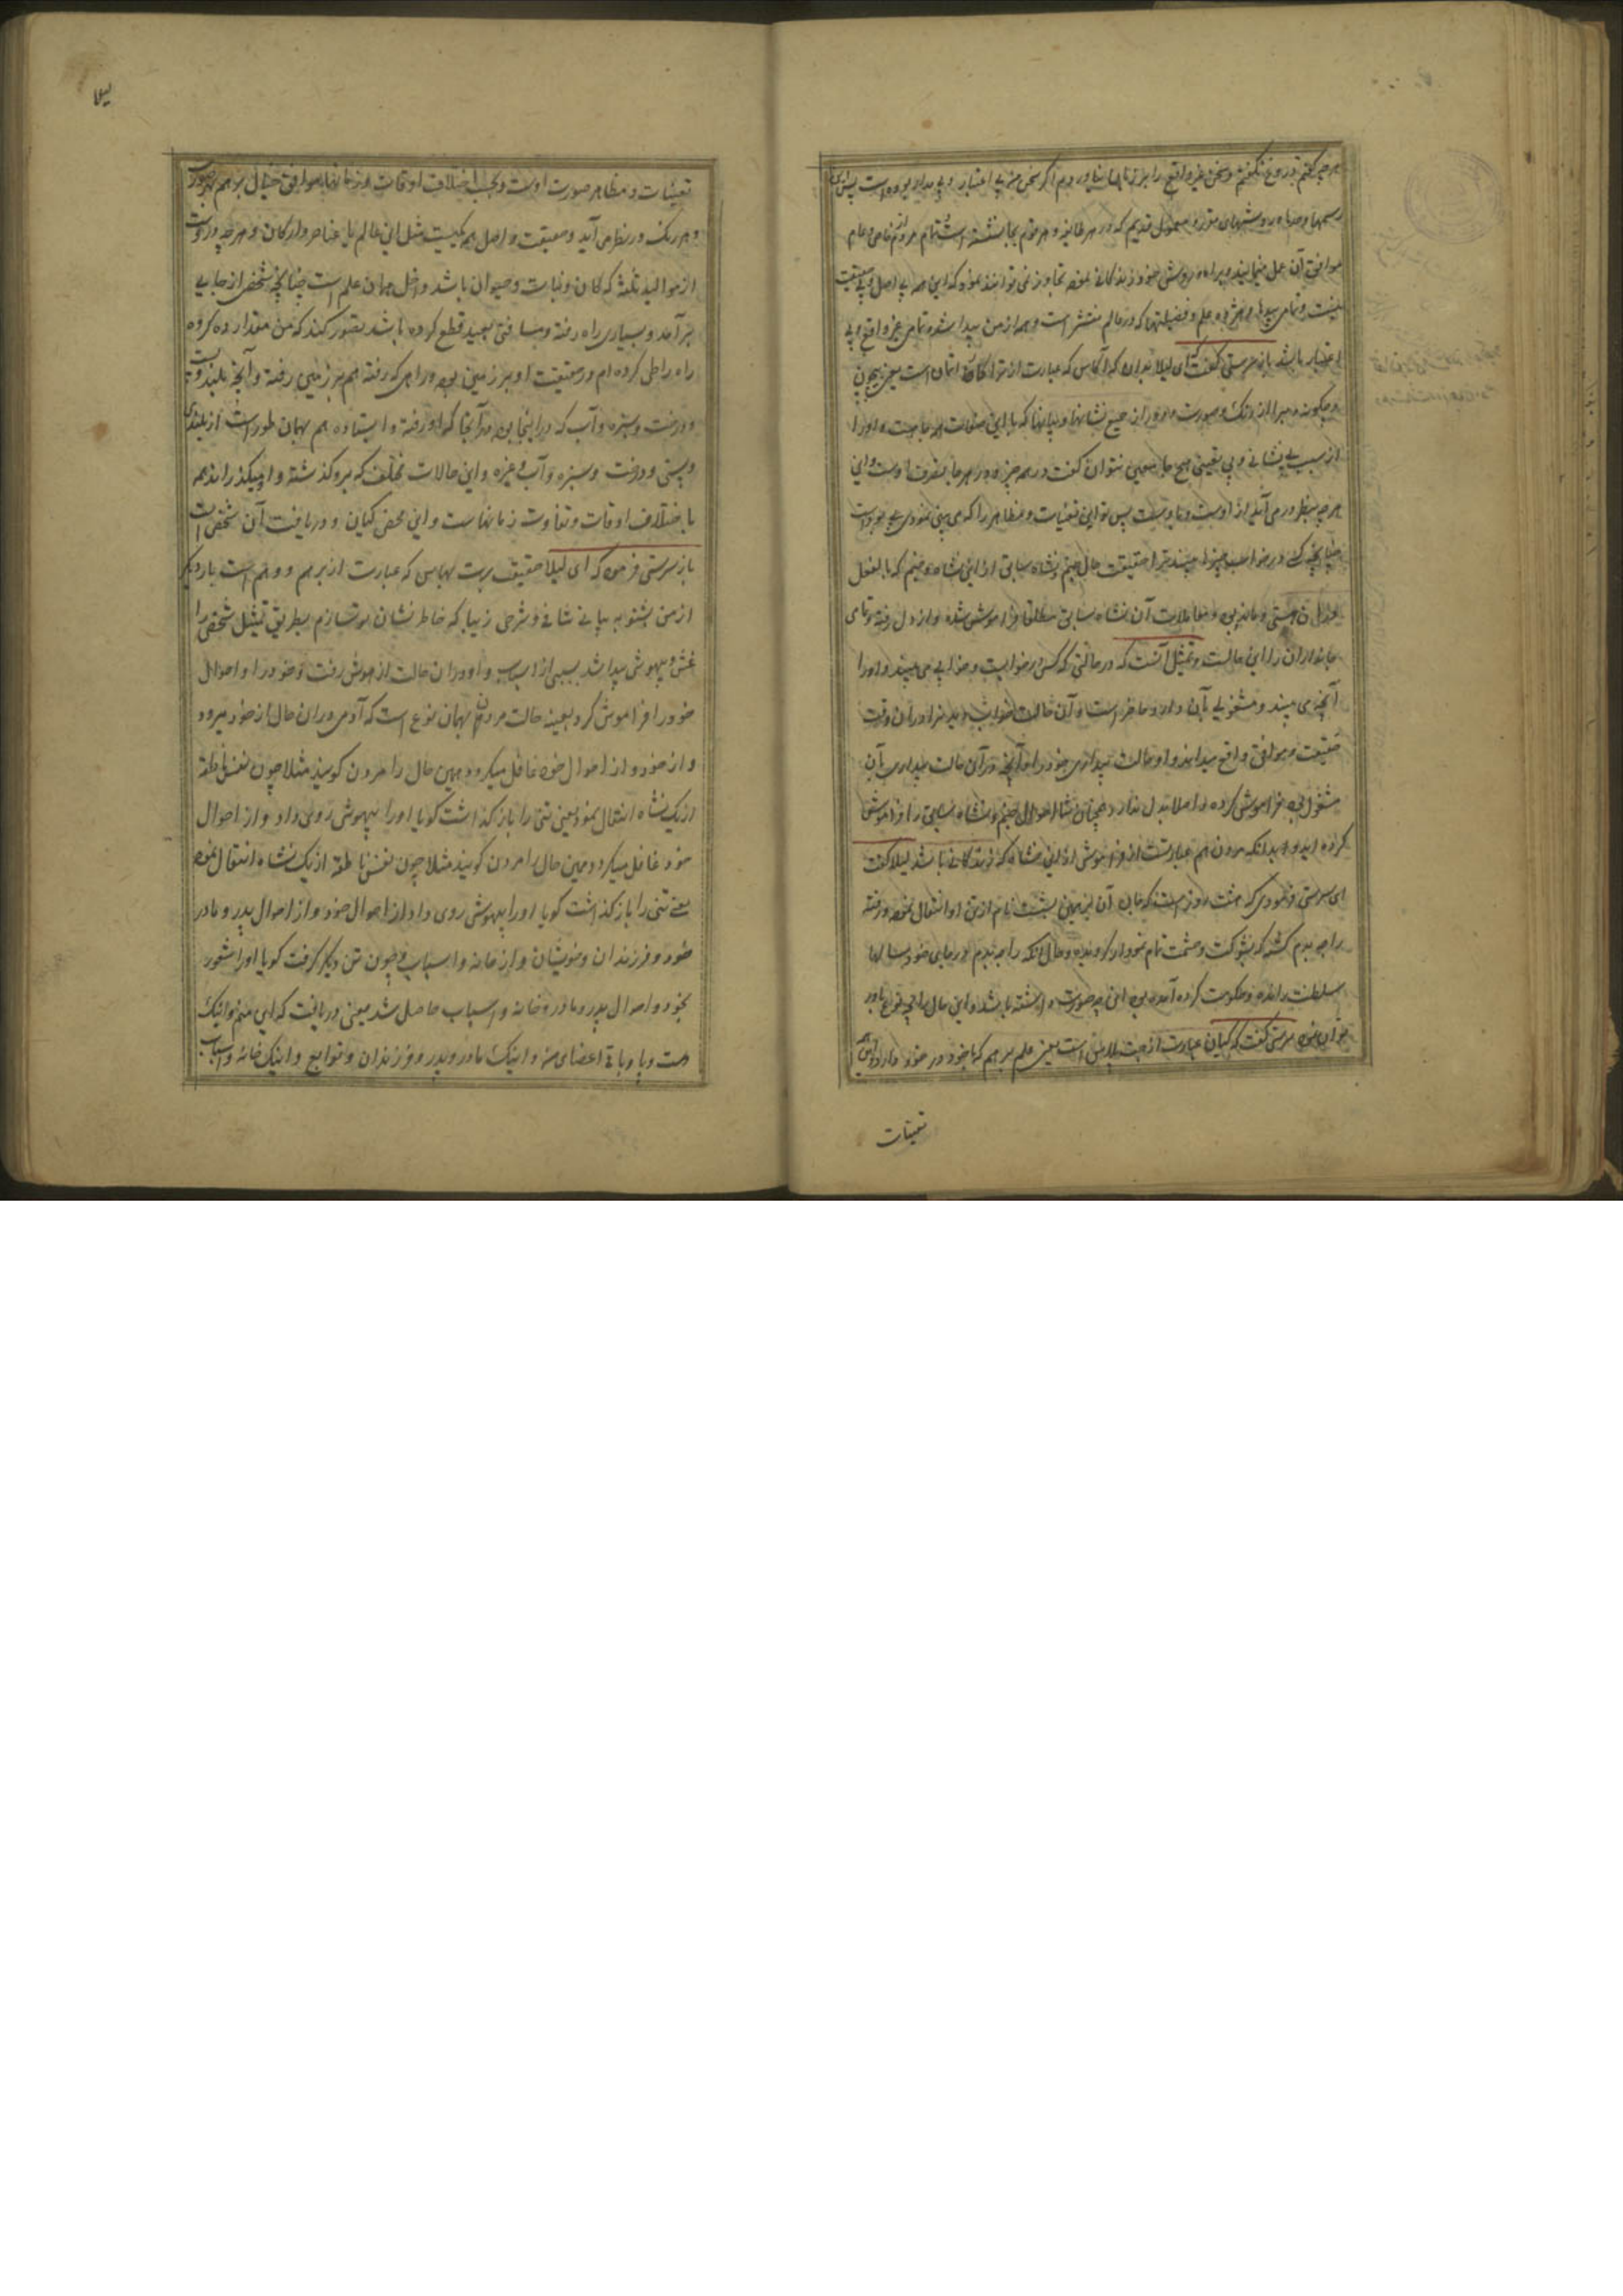 هرچه گفتم دروغ نگفتم و سخن غیر واقع را بر زبان نیاوردم اگر سخن من بی اعتبار و بی مدار بوده است پس این
رسمها و راه و روشهای مقرر و معمول قدیم که در هر طایفه و هر قوم بجا نشسته است تمام مردم خاص و عام
موافق آن عمل مینمایند و براه و روش خود زندگانی نموده تجاوز نمی توانند نمود که این همه بی اصل و بی حقیقت
نیست و تمامی بیدها و علم و فضیلتها که در عالم منتشر است و همه از من پیدا شده تمامی غیر واقع و بی
اعتبار باشد باز سرستی گفت ای لیلا بدان که آکاس که عبارت از است یعنی بیچون
و چگونه مبرا از رنگ و صورت و از جمیع نشانها و بیانها که با این صفات همه جا هست و او را
از سبب بی نشانی و بی یقینی هیچ جا معین نتوان گفت در همه چیز و در هر جا تصرف اوست و این
هرچه بنظر درمی آید از اوست و با اوست پس تو این تعینات و مظاهر را که می بینی نمودی بی بود است
چنانچه کسی در خواب چیزها بیند ترا حقیقت حال جنم و نشاه سابق از این نشاه و جنم که بالفعل
در آن هستی و معاملات آن نشاه سابق مطلقا فراموش شده و از دل رفته و تمامی
جانداران را این حالست و تمثیل آنست که در حالتی که کسی در خوابست و خوابی می بیند و او را
آنچه می بیند و مشغولی بآن دارد حاضر است و آن حالت خواب را در آن وقت
حقیقت و موافق واقع میداند و او حالت بیداری خود را و آنچه در آن حالت بیداری بآن
مشغول بود فراموش کرده و اصلا بدل ندارد همچنان شما احوال جنم و نشاه سابق را فراموش
کرده اید و بدانکه مردن هم عبارتست از فراموشی از این نشاه که زندگانی باشد لیلا گفت
ای سرستی فرمودی که هشت روز است که آن برهمن بشست نام از تن او انتقال نموده و رفته
راجه پدم گشته که بشوکت و حشمت تمام نمودار گردیده و حال آنکه راجه پدم در جای خود سالها
سلطنت رانده و حکومت کرده آمده بود این چه صورت داشته باشد و این حال را بچه نوع باور
توان نمود سرستی گفت که گیان عبارت از است یعنی علم برهم که بخود در خود دارد و این همه
تعینات
تعینات و مظاهر صورت اوست و بحسب اختلاف اوقات و زمانها موافق خیال برهم بهر صورت
و هر رنگ در نظر می آید و حقیقت و اصل همه یکیست مثل این عالم با عناصر و ارکان و هرچه در اوست
از موالید ثلثه که کان و نبات و حیوان باشد داخل همان علم است چنانچه شخصی از جایی
برآمد و بسیاری راه رفته و مسافتی بعید قطع کرده باشد تصور کند که من مقدار ده کروه
راه را طی کرده ام در حقیقت او بر زمین بود و راهی که رفته هم بر زمین رفته و آنچه بلند و پست
و درخت و سبزه و آب که در اینجا بود در آنجا که او رفته و ایستاده هم بهمان طور است از بلندی
و پستی و درخت و سبزه و آب و غیره و این حالات مختلف که برو گذشته و او میگذراند همه
باختلاف اوقات و تفاوت زمانهاست و این محض گیان و دریافت آن شخص است
باز سرستی فرمود که ای لیلا حقیقت پرت بهاس که عبارت از برهم و وهم است بار دیگر
از من بشنو به بیانی شافی و شرحی زیبا که خاطر نشان تو سازم بطریق تمثیل شخصی را
غش و بیهوشی پیدا شد بسببی از اسباب و او در آن حالت از هوش رفت و خود را و احوال
خود را فراموش کرد بعینه حالت مردن هم بهمان نوع است که آدمی در آن حال از خود میرود
و از خود و از احوال خود غافل میگردد همین حال را مردن گویند مثلا چون نفس ناطقه
از یک نشاه انتقال نمود یعنی تنی را باز گذاشت گویا او را بیهوشی روی داد و از احوال
خود غافل میگردد همین حال را مردن گویند مثلا چون نفس ناطقه از یک نشاه انتقال نموده
یعنی تنی را باز گذاشت گویا او را بیهوشی روی داد از احوال خود و از احوال پدر و مادر
خود و فرزندان و خویشان و از خانه و اسباب و چون تن دیگر گرفت گویا او را شعور
بخود و احوال پدر و مادر و خانه و اسباب حاصل شد یعنی دریافت که این منم و اینک
دست و پا و باقی اعضای من و اینک مادر و پدر و فرزندان و توابع و اینک خانه و اسباب